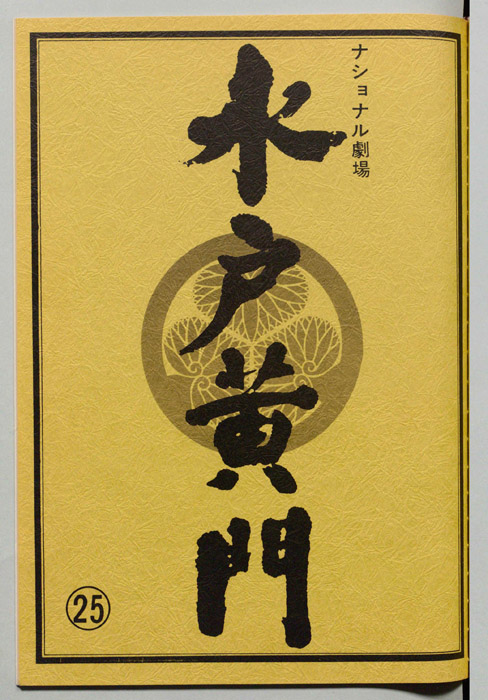 ナショナル劇場
水戸黄門
㉕